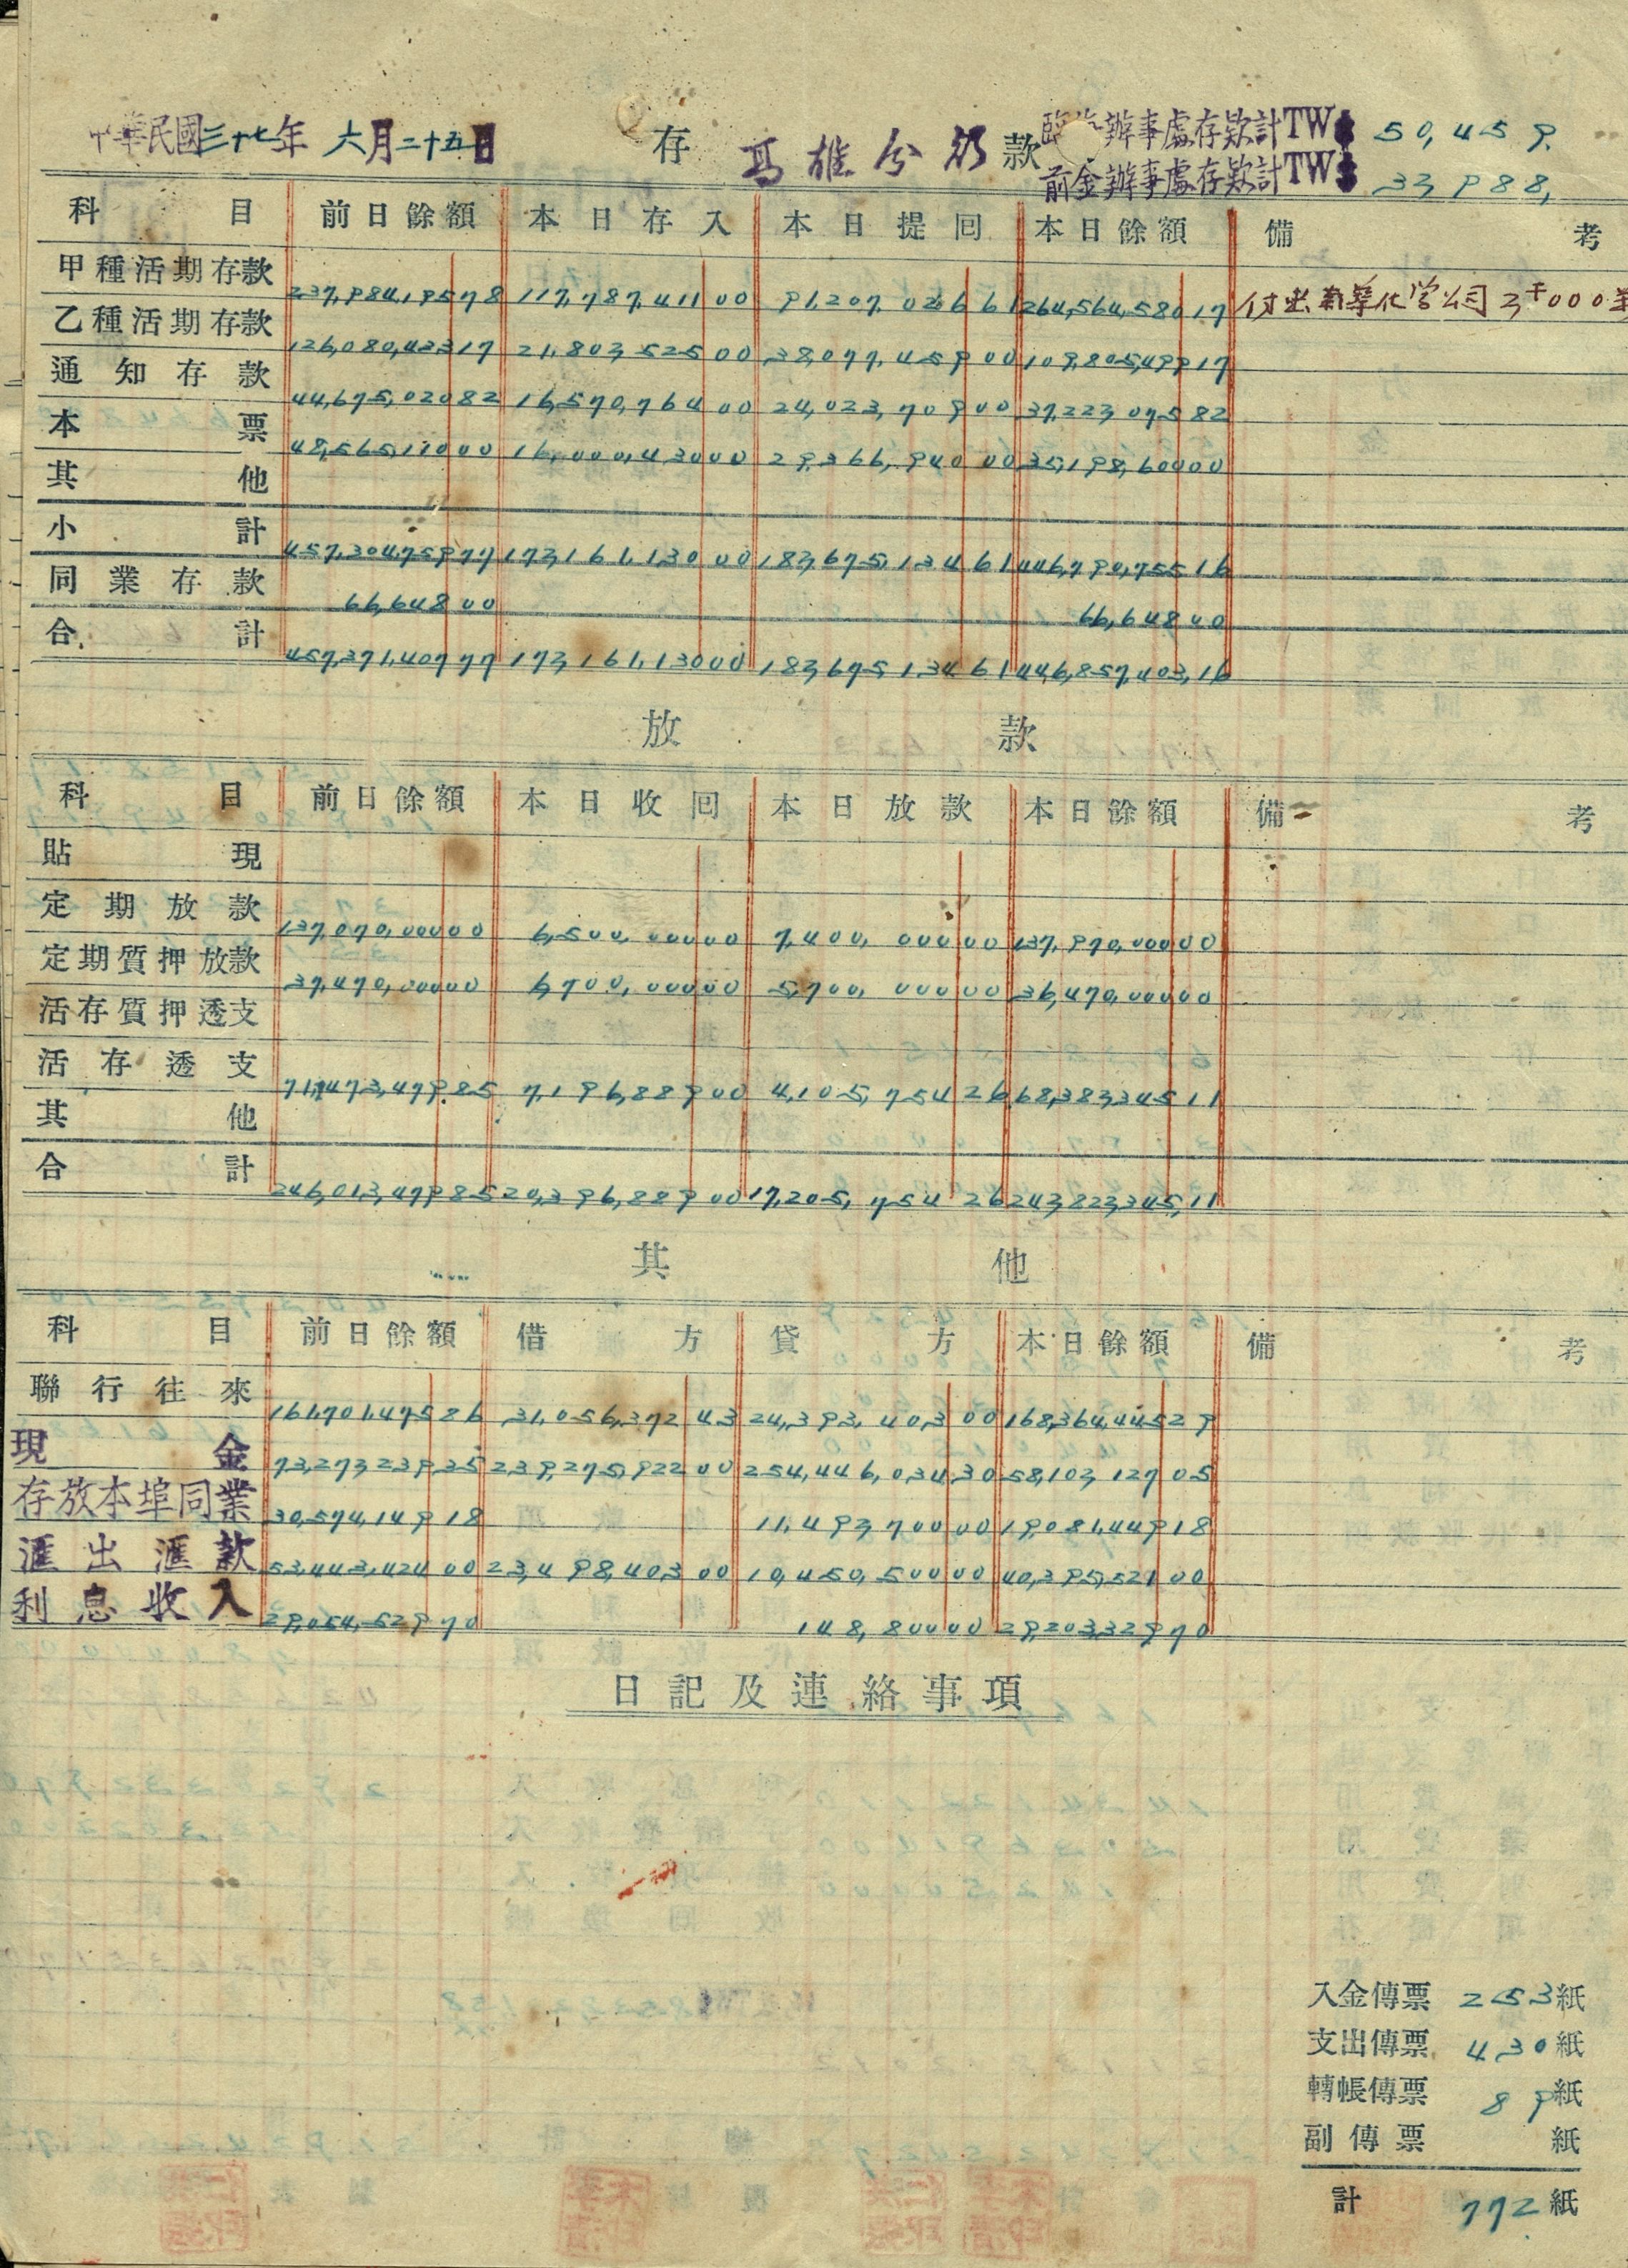 中華民國三十七年 六月二十五日 存 高雄分行 款 辦事處存款計TW$ 50,459.
前金辦事處存款計TW$ 33,988,
科目 前日餘額 本日存入 本日提回 本日餘額 備考
甲種活期存款 237,984,195 78 117,787,411 00 91,207,026 61 264,564,580 17
乙種活期存款 126,080,433 17 21,803,525 00 38,077,459 00 109,805,499 17
通知存款 44,675,020 82 16,570,764 00 24,023,709 00 37,222,075 82
本票 48,565,110 00 16,000,430 00 29,366,940 00 35,198,600 00
其他
小計 457,304,759 77 173,161,130 00 183,675,134 61 446,790,755 16
同業存款 66,648 00 66,648 00
合計 457,371,407 77 173,161,130 00 183,675,134 61 446,857,403,16
放款
科目 前日餘額 本日收回 本日放款 本日餘額 備考
貼現
定期放款 137,070,000 00 6,500,000 00 7,400,000 00 137,970,000 00
定期質押放款 37,470,000 00 6,700,000 00 5,700,000 00 36,470,000 00
活存質押透支
活存透支 71,473,479 85 7,196,889 00 4,105,754 26 68,382,345 11
其他
合計 246,013,479 85 20,396,889 00 17,205,754 26 242,822,345,11
其他
科目 前日餘額 借方 貸方 本日餘額 備考
聯行往來 161,701,475 86 31,056,372 43 24,393,403 00 168,364,445 29
現金 73,273,239 35 239,275,922 00 254,446,034 30 58,103,127 05
存放本埠同業 30,574,149 18 11,493,700 00 19,081,449 18
滙出滙款 53,443,424 00 23,498,403 00 10,450,500 00 40,395,521 00
利息收入 29,054,529 70 148,800 00 29,203,329 70
日記及連絡事項
入金傳票 253紙
支出傳票 430紙
轉帳傳票 89紙
副傳票 紙
計 772紙